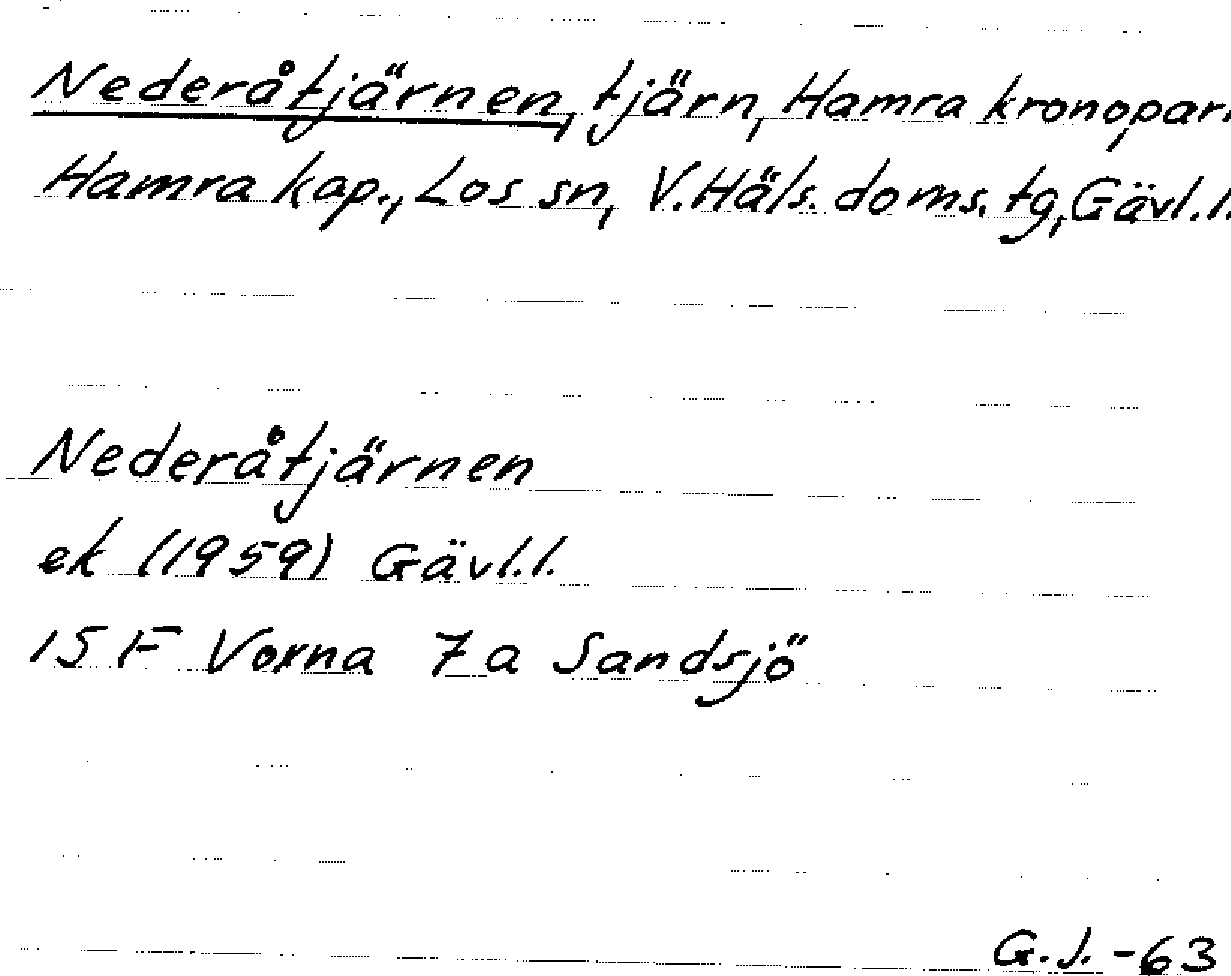 Nederåtjärnen, tjärn, Hamra kronopark
Hamra kap., Los sn, V.Häls. doms. tg, Gävl.l.
Nederåtjärnen
ek (1959) Gävl.l.
15 F Vorna 7a Sandsjö
G.J. -63